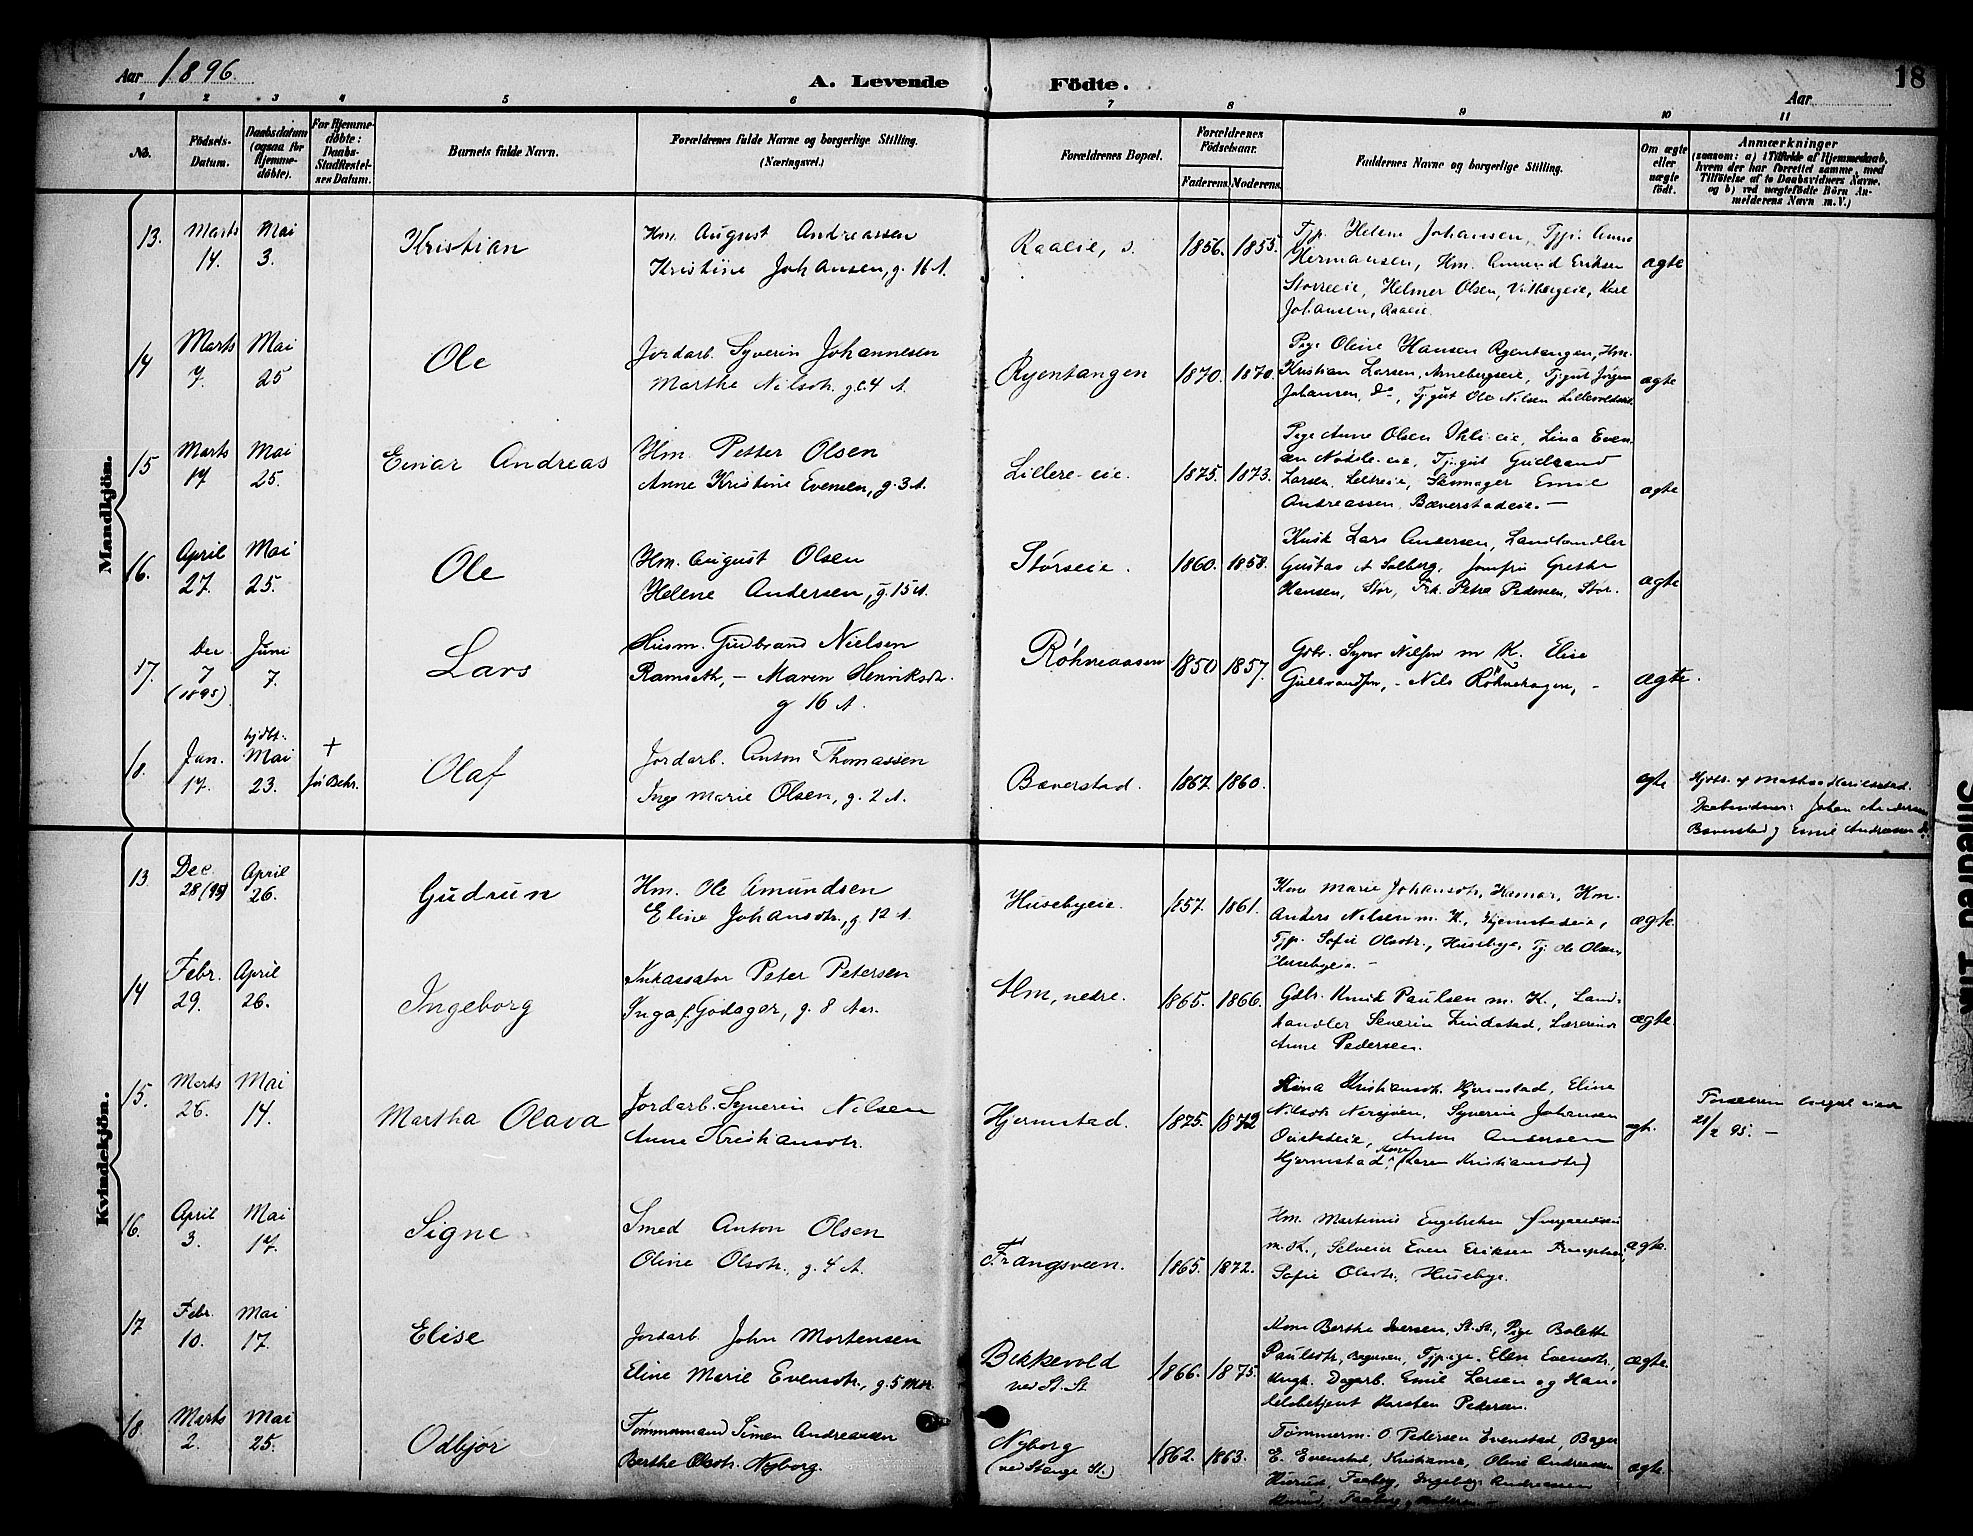 Aar 1896.
A. Levende Födte.
Aar
18
1 2 3 4 5 6 7 8 9 10 11
No.
Födsels-Datum.
Daabsdatum (ogsaa for Hjemmedöbte).
For Hjemmedöbte: Daabs-Stadfæstelses Datum.
Barnets fulde Navn.
Forældrenes fulde Navne og borgerlige Stilling. (Næringsvei.)
Forældrenes Bopæl.
Forældrenes Födselsaar.
Faderens. Moderens.
Faddernes Navne og borgerlige Stilling.
Om ægte eller uægte födt.
Anmærkninger
(saasom: a) i Tilfælde af Hjemmedaab, hvem der har forrettet samme, med Tilföielse af to Daabsvidners Navne, og b) ved uægtefödte Börn Anmelderens Navn m. V.)
Mandkjön.
13. Marts 14. Mai 3. Kristian
Hm. August Andreassen
Kristine Johansen, g. 16 A.
Raaeie, s. 1856. 1855.
Tjp. Helene Johansen, Tjp. Anne
Hermansen, Hm. Amund Eriksen
Storreeie, Helmer Olsen, Vilbergeie, Karl
Johansen, Raaeie.
ægte
14 Marts 7. Mai 25 Ole
Jordarb. Syverin Johannesen
Marthe Nilsdtr. g. 4 A.
Ryentangen 1870. 1870.
Pige Oline Hansen Ryentangen, Hm.
Kristian Larsen, Arnebergseie, Tj.gut Jörgen
Johansen, Do, Tj.gut Ole Nilsen
ægte
15 Marts 17 Mai 25. Einar Andreas
Hm. Petter Olsen
Anne Kristine Evensen, g. 3 A.
Lillere-eie. 1875. 1873.
Pige Anne Olsen eie, Lina Even-
sen eie, Tj.gut Gudbrand
Larsen, Emil
Andreassen, Bæverstadeie. —
ægte
16. April 27. Mai 25. Ole
Hm. August Olsen
Helene Andersen, g. 15 A.
Störseie. 1860. 1858.
Kusk Lars Andersen, Landhandler
Gustav A Solberg, Jomfru Grethe
Hansen, Stor, Frk. Petra Pedersen, Stor.
ægte
17. Dec. 7 (1895) Juni 7. Lars
Husm. Gudbrand Nielsen
Ramseth, – Maren Henriksdtr.
g 16 A.
Röhneaasen 1850 1857.
Gbr. Syver Nilsen m K. Elise
Gulbrandsen, – Nils Röhnehagen, –
ægte.
18. Jan. 17. hjdbt. Mai 23. + før Bekr. Olaf
Jordarb. Anton Thomassen
Inge Marie Olsen, g. 2 A.
Bæverstad. 1867. 1860.
ægte
Hjdbt. af Mathea
Daabsvidner: Johan Andersen
Bæverstad, Emil Andreassen Do
Kvindekjön.
13 Dec. 28 (95) April 26. Gudrun
Hm. Ole Amundsen
Eline Johansdtr. g. 12 A.
Husebyeie. 1857. 1861.
Kone Marie Johansdtr. Hamar, Hm.
Anders Nilsen m. K., Hjermstadeie,
Tjp. Sofie Olsdtr., Huseby, Tj. Ole Olsen,
Husebyeie. –
ægte.
14 Febr. 29. April 26. Ingeborg
Inkassator Peter Petersen
Inga f. Godager, g. 8 Aar.
Alm, nedre. 1865. 1866.
Gdbr. Henrik Paulsen m. K., Land-
handler Severin Lindstad, Lærerinde
Anne Pedersen.
ægte.
15. Marts 26. Mai 14. Martha Olava
Jordarb. Syverin Nilsen
Anne Kristiansdtr.
Hjermstad. 1875. 1872
Lina Kristiansdtr. Hjermstad, Eline
Nilsdtr Syverin Johansen
Anton Andersen
Hjermstad, (Karen Kristiansdtr)
ægt.
Forældrene
21/2 95. –
16. April 3. Mai 17. Signe
Smed Anton Olsen
Oline Olsdtr., g. 4 A.
Frangsveen. 1865. 1872.
Hm. Martinius Engebretsen
m. K., Selveier Even Eriksen
Sofie Olsdtr. Husebye.
ægte.
17 Febr. 10. Mai 17. Elise
Jordarb. John Mortensen
Eline Marie Evensdtr., g. 5 Mdr.
Bekkevold
ved St. St 1866. 1875.
Kone Berthe Iversen, St. St., Pige Bolette
Paulsdtr, Tjpige. Elen Evensdtr,
Ungk. Dagarb. Emil Larsen og Han-
delsbetjent Karsten Pedersen.
ægte.
18. Marts 2. Mai 25. Odbjör
Tömmermand Simen Andreassen
Berthe Olsdtr. Nyborg.
Nyborg
(ved Stange St.) 1862. 1863.
Tömmerm. O. Pedersen Evenstad, Bager
E. Evenstad, Kristiania, Oline Andreassen
Faaberg, Ingeborg Andreassen
ægte.